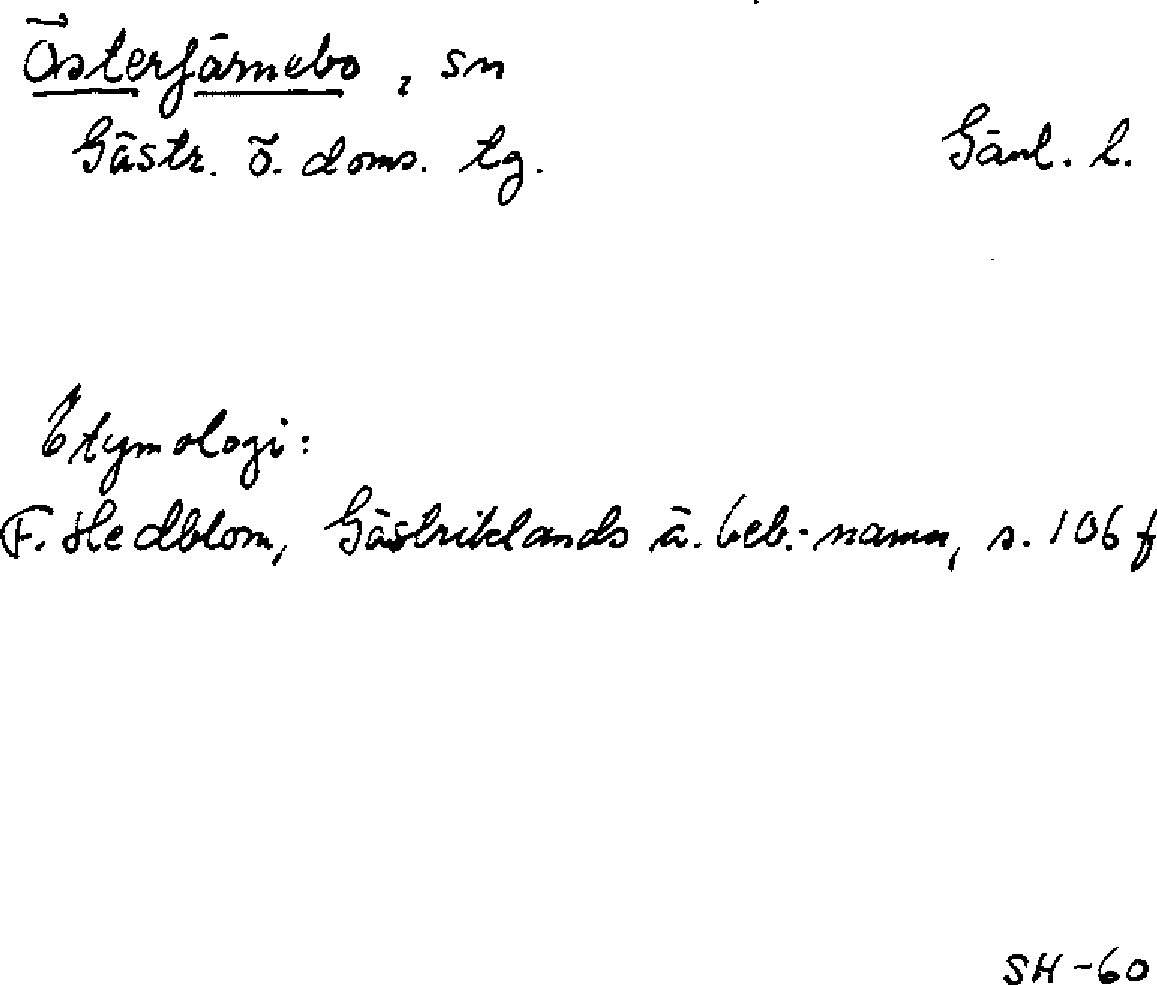 Österfärnebo, sn
Gästr. ö. doms. tg. Gävl. l.
Etymologi:
F. Hedblom, Gästriklands ä. beb.-namn, s. 106 f
SH-60